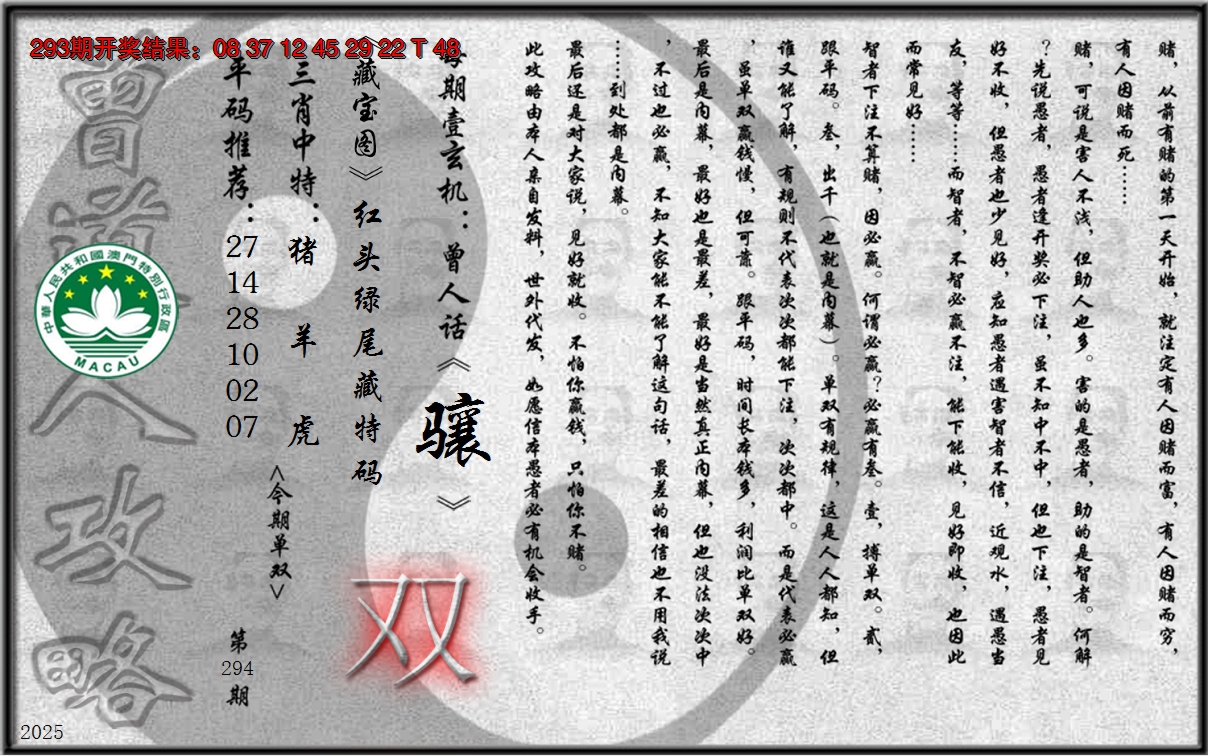 293期开奖结果：08 37 12 45 29 22 T 48
赌，从前有赌的第一天开始，就注定有人因赌而富，有人因赌而穷，
有人因赌而死……
赌，可说是害人不浅，但助人也多。害的是愚者，助的是智者。何解
？先说愚者，愚者逢开奖必下注，虽不知中不中，但也下注，愚者见
好不收，但愚者也少见好，应知愚者遇害智者不信，近观水，遇愚当
友，等等……而智者，不智必赢不注，能下能收，见好即收，也因此
而常见好……
智者下注不算赌，因必赢。何谓必赢？必赢有叁。壹，搏单双。贰，
跟平码。叁，出千（也就是内幕）。单双有规律，这是人人都知，但
谁又能了解，有规则不代表次次都能下注，次次都中。而是代表必赢
，虽单双赢钱慢，但可靠。跟平码，时间长本钱多，利润比单双好。
最后是内幕，最好也是最差，最好是当然真正内幕，但也没法次次中
，不过也必赢，不知大家能不能了解这句话，最差的相信也不用我说
……到处都是内幕。
最后还是对大家说，见好就收。不怕你赢钱，只怕你不赌。
此攻略由本人亲自发料，世外代发，如愿信本愚者必有机会收手。
每期壹玄机：曾人话《骧》
《藏宝图》红头绿尾藏特码
双
三肖中特：猪 羊 虎
<今期单双>
平码推荐：27 14 28 10 02 07
第294期
曾道人攻略
中華人民共和國澳門特別行政區
MACAU
2025